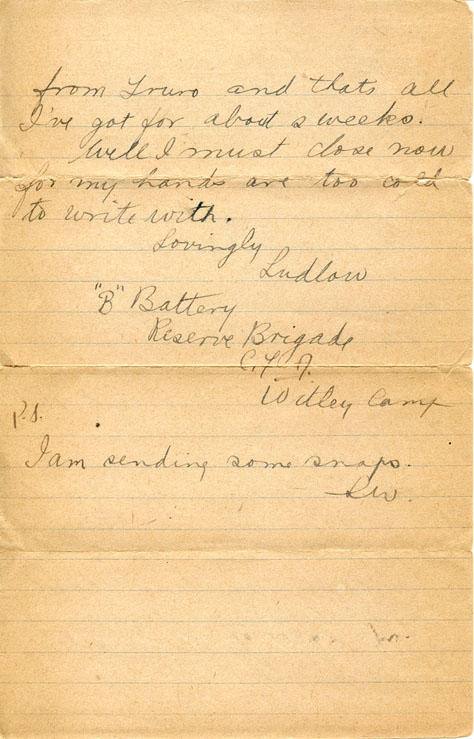 from Truro and thats all
I've got for about 2 weeks.
Well I must close now
for my hands are too cold
to write with.
Lovingly
Ludlow
"B" Battery
Reserve Brigade
C.F.A.
Witley Camp
P.S.
I am sending some snaps.